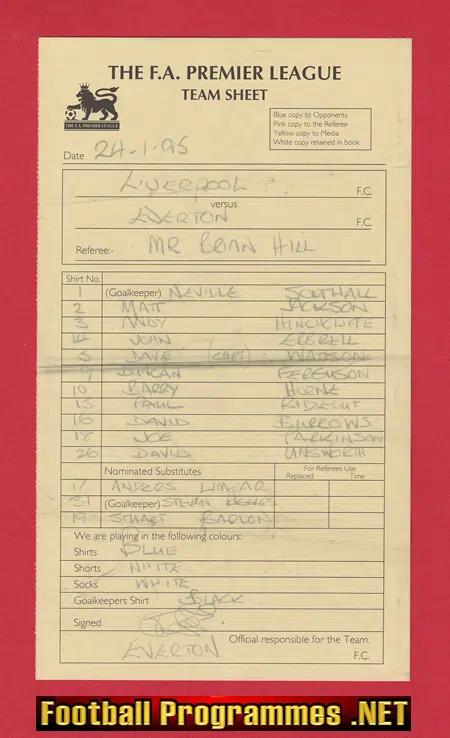 THE F.A. PREMIER LEAGUE
TEAM SHEET
THE F.A. PREMIER LEAGUE
Blue copy to Opponents
Pink copy to the Referee
Yellow copy to Media
White copy retained in book
Date 24-1-95
LIVERPOOL F.C.
versus
EVERTON F.C.
Referee:- MR BRIAN HILL
Shirt No.
1 (Goalkeeper) NEVILLE SOUTHALL
2 MATT JACKSON
3 ANDY HINCHCLIFFE
14 JOHN EBBRELL
5 DAVE (CAPT) WATSON
9 DUNCAN FERGUSON
10 BARRY HORNE
15 PAUL RIDEOUT
16 DAVID BURROWS
18 JOE PARKINSON
26 DAVID UNSWORTH
Nominated Substitutes
For Referees Use
Replaced Time
17 ANDERS LIMPAR
31 (Goalkeeper) STEVEN
19 STUART BARLOW
We are playing in the following colours:
Shirts BLUE
Shorts WHITE
Socks WHITE
Goalkeepers Shirt BLACK
Signed
Official responsible for the Team.
EVERTON F.C.
Football Programmes .NET